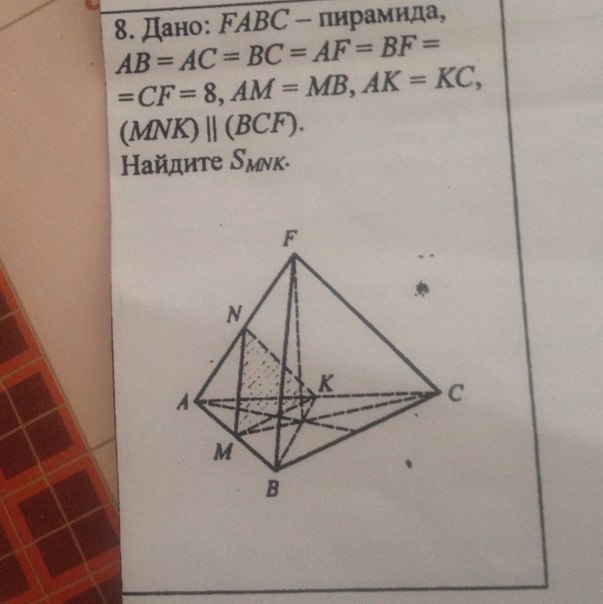 8. Дано: FABC – пирамида,
AB = AC = BC = AF = BF =
= CF = 8, AM = MB, AK = KC,
(MNK) || (BCF).
Найдите S_MNK.
F
N
A
K
C
M
B